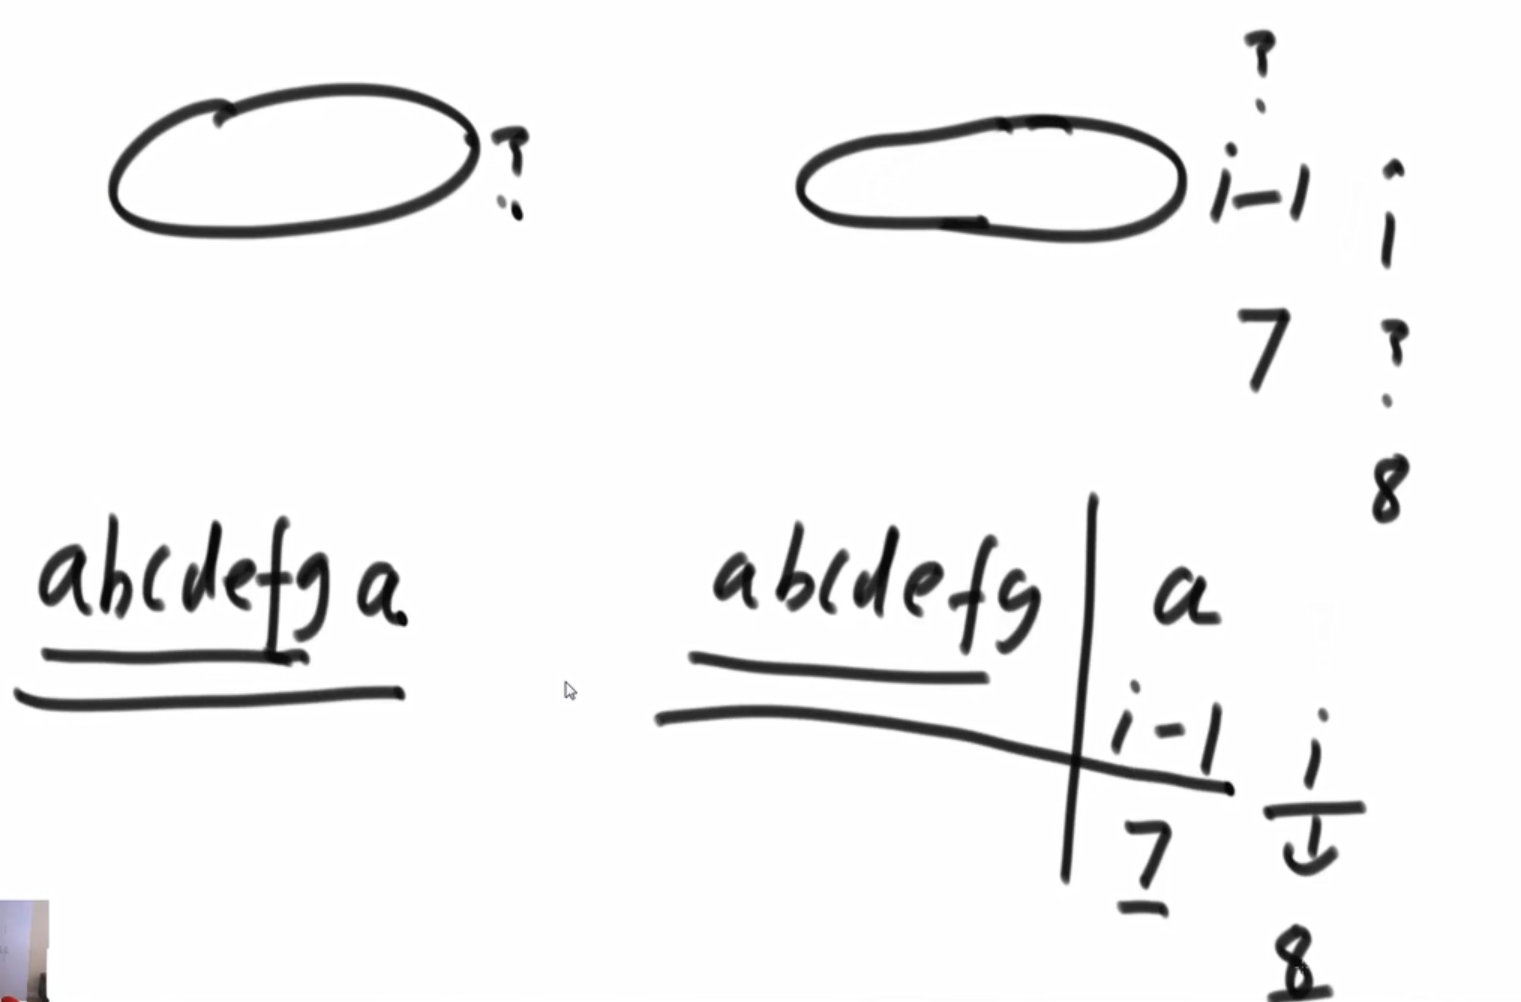 ?
?
i-1 i
7 ?
8
abcdefg a abcdefg a
i-1 i
7
8